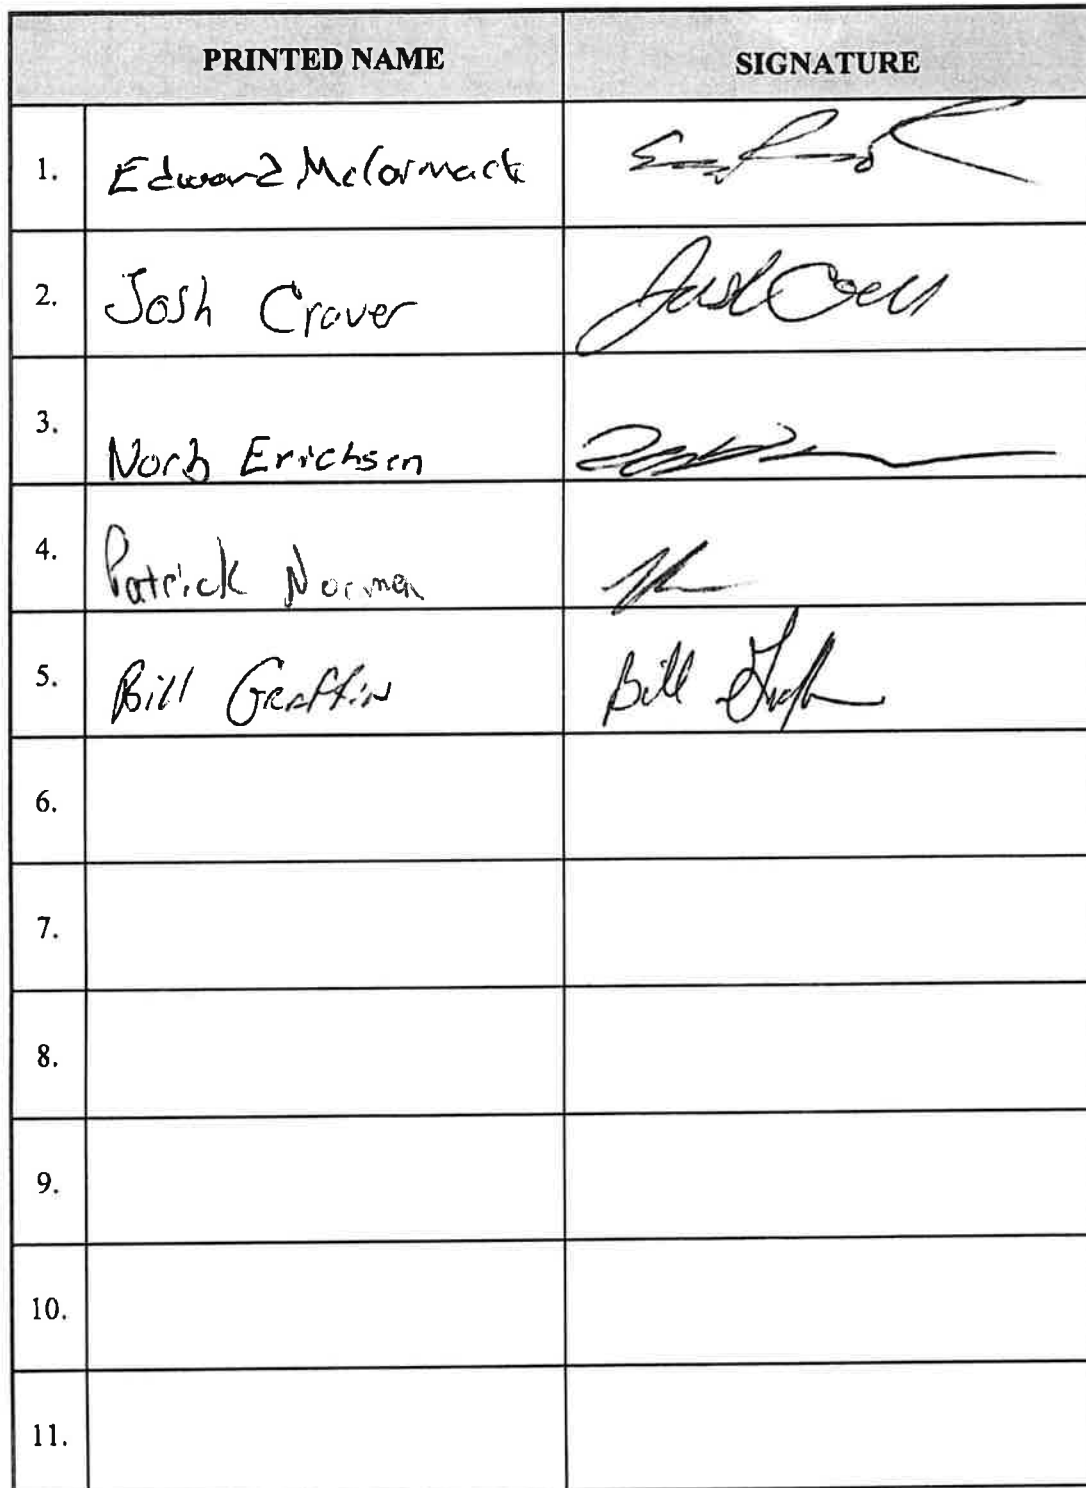 PRINTED NAME SIGNATURE
1. Edward McCormack
2. Josh Craver
3. Norb Erichsen
4. Patrick Norman
5. Bill Graffin Bill
6.
7.
8.
9.
10.
11.